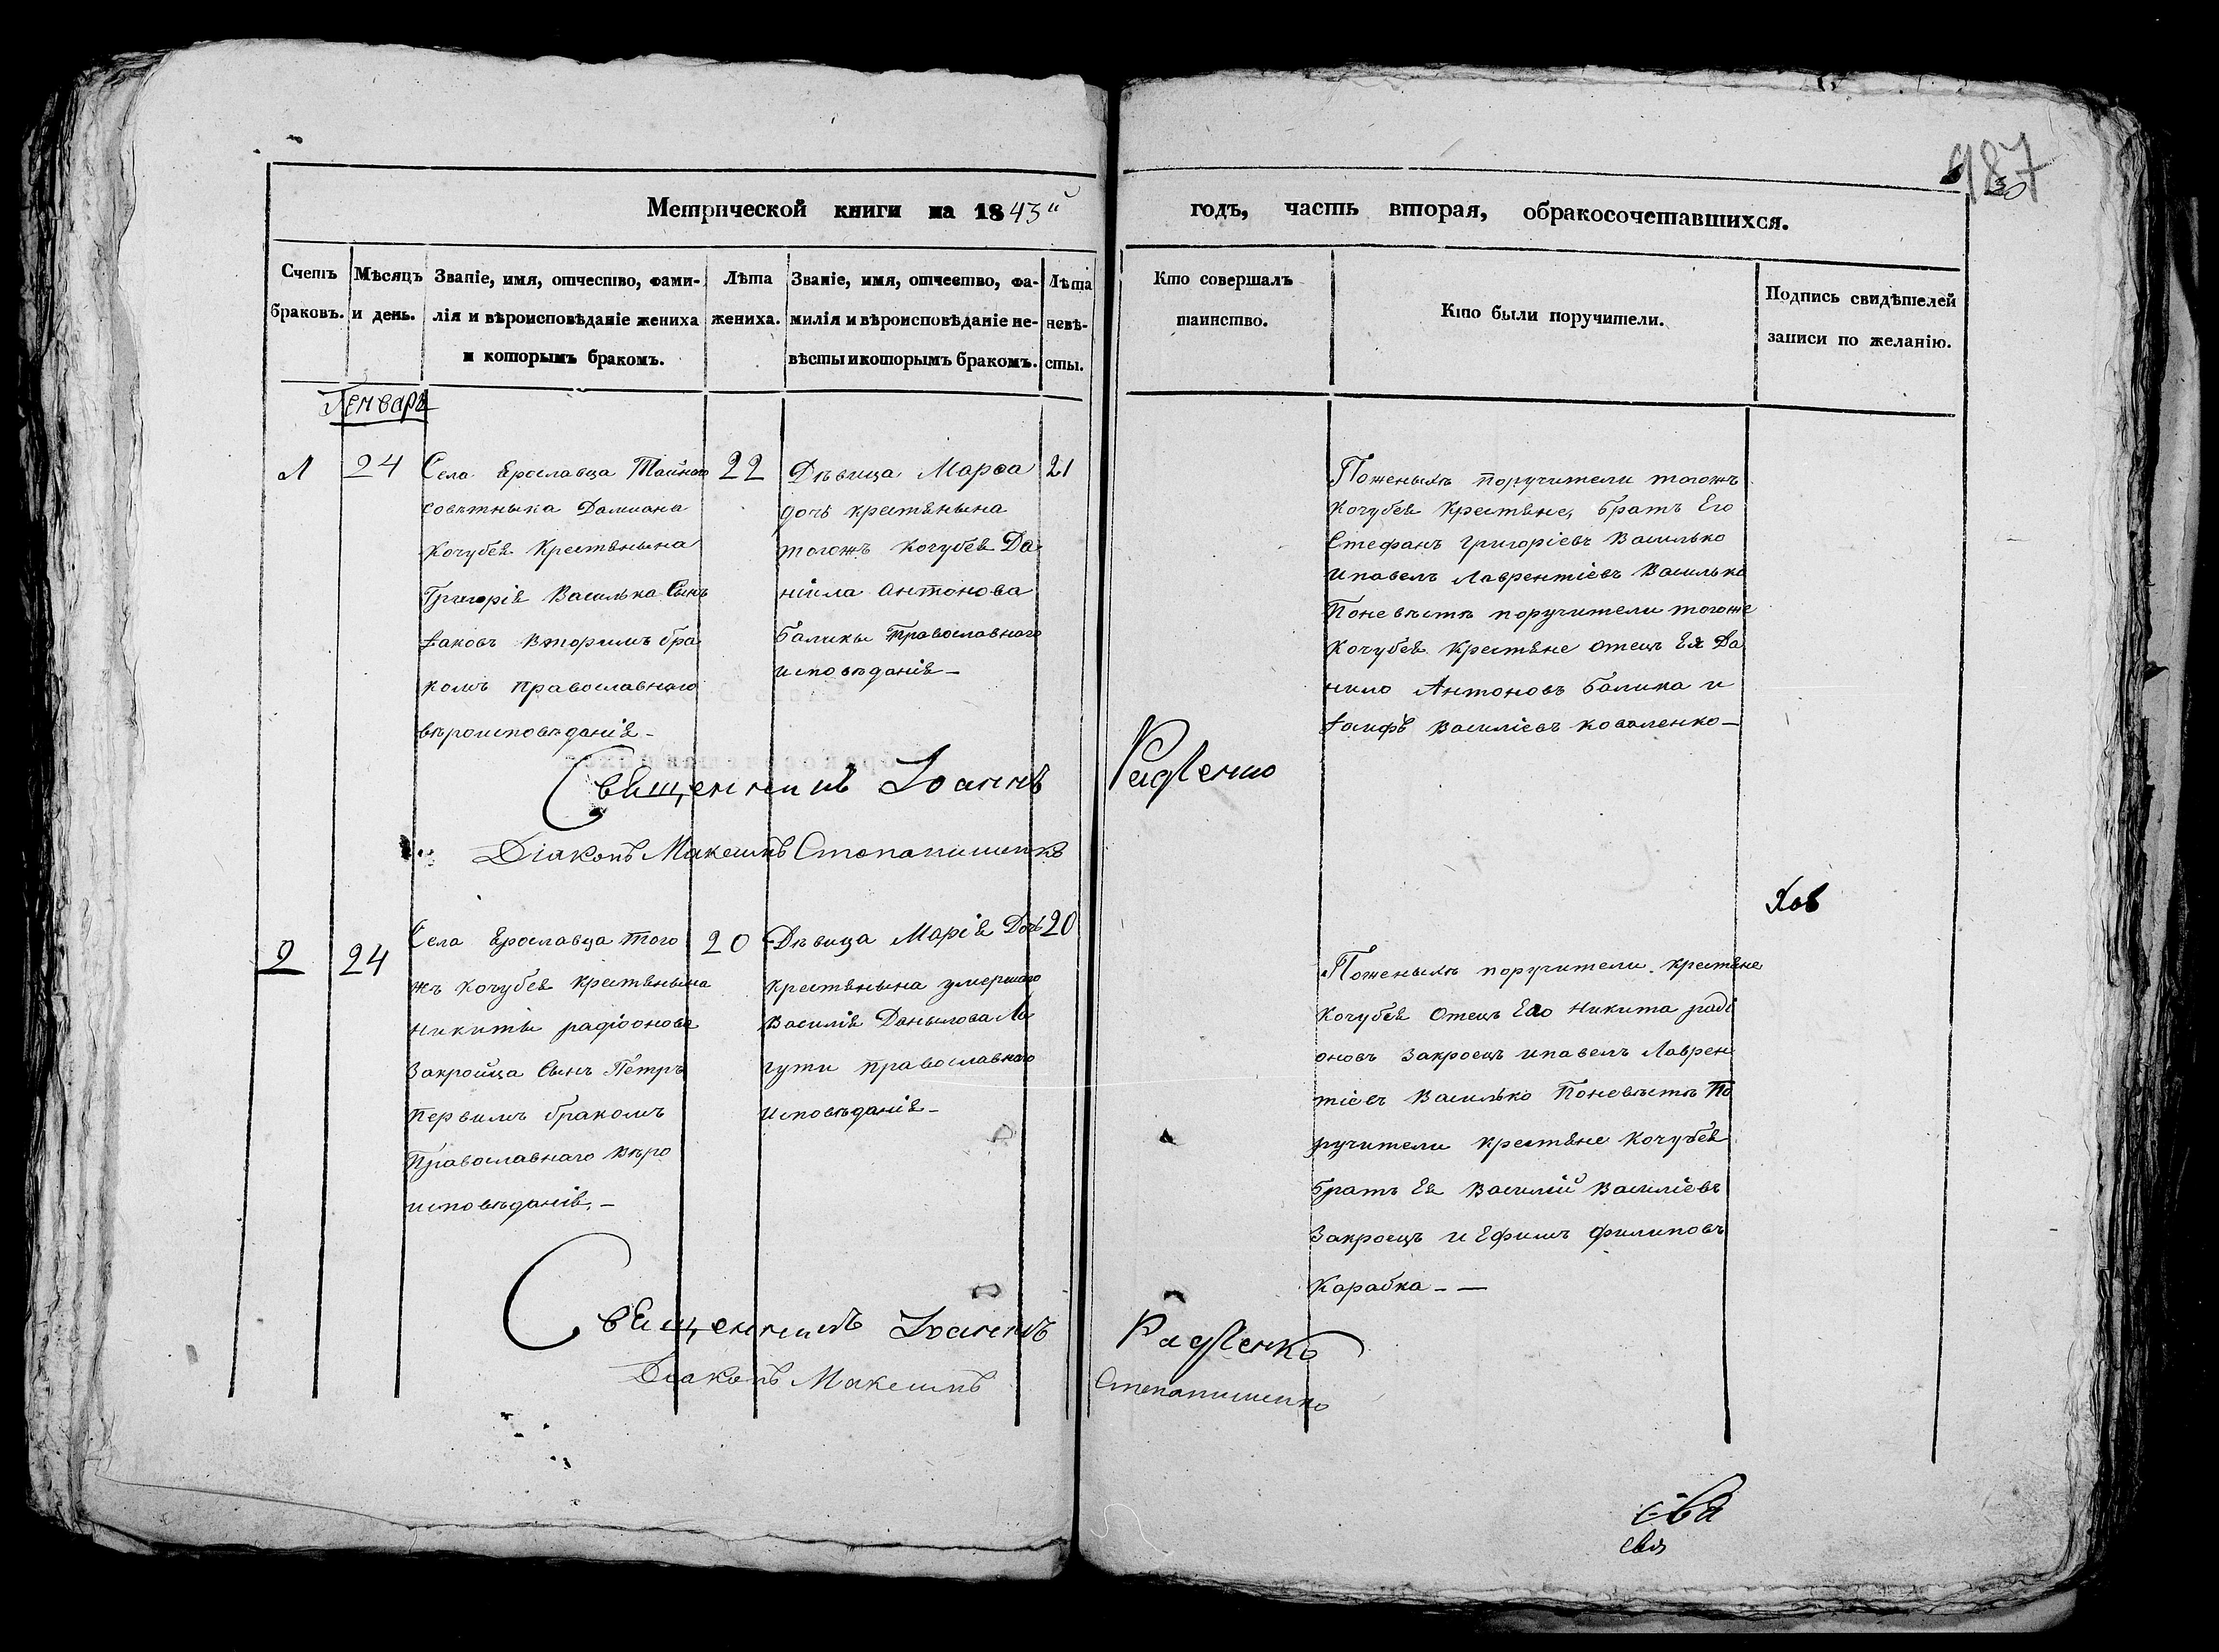 987
30
Метрической книги на 1843й
годъ, часть вторая, обракосочетавшихся.
Счетъ
браковъ.
Мѣсяцъ
и день.
Званіе, имя, отчество, фами-
лія и вѣроисповѣданіе жениха
и которымъ бракомъ.
Лѣта
жениха.
Званіе, имя, отчество, фа-
милія и вѣроисповѣданіе не-
вѣсты и которымъ бракомъ.
Лѣта
невѣ-
сты.
Кто совершалъ
таинство.
Кто были поручители.
Подпись свидѣтелей
записи по желанію.
Генварь
1
24
Села Ярославца Тайного
совѣтныка Дамиана
Кочубея Крестянына
Григорія Василька Сынъ
Іаковъ Вторимъ бра
комъ православнаго
вѣроисповѣданія –
22
Дѣвица Марѳа
дочь крестянына
тогожъ Кочубея Да
ніила Антонова
Балыки Православнаго
исповѣданія –
21
Поженыхѣ поручители тогожъ
Кочубея Крестяне, братъ Его
Стефанъ Григоріевъ Василько
и павелъ Лаврентіевъ Василько
Поневѣстѣ поручители тогоже
Кочубея Крестяне отецъ Ея Да
нило Антоновъ Балика и
Іосифъ Василіевъ Коваленко –
Священникъ Іоаннъ Радченко
Діаконъ Максимъ Степанишенко
Хов
2
24
Села Ярославца того
жъ Кочубея Крестянына
Никиты радіонова
Закройца Сынъ Пётръ
первимъ бракомъ
Православнаго вѣро
исповѣданія. –
20
Дѣвица Марія Дочь
Крестянына умершаго
Василія Данылова Ла
гути православнаго
исповѣданія –
20
Поженыхѣ поручители крестяне
Кочубея Отецъ Его Никита раді
оновъ Закроецъ и павелъ Лаврен
тіевъ Василько Поневѣстѣ По
ручители крестяне Кочубея
братъ Ея Василій Василіевъ
Закроецъ и Ефимъ Филиповъ
Карабка – –
Священникъ Іоаннъ Радченко
Діаконъ Максимъ Степанишенко
свя
свя